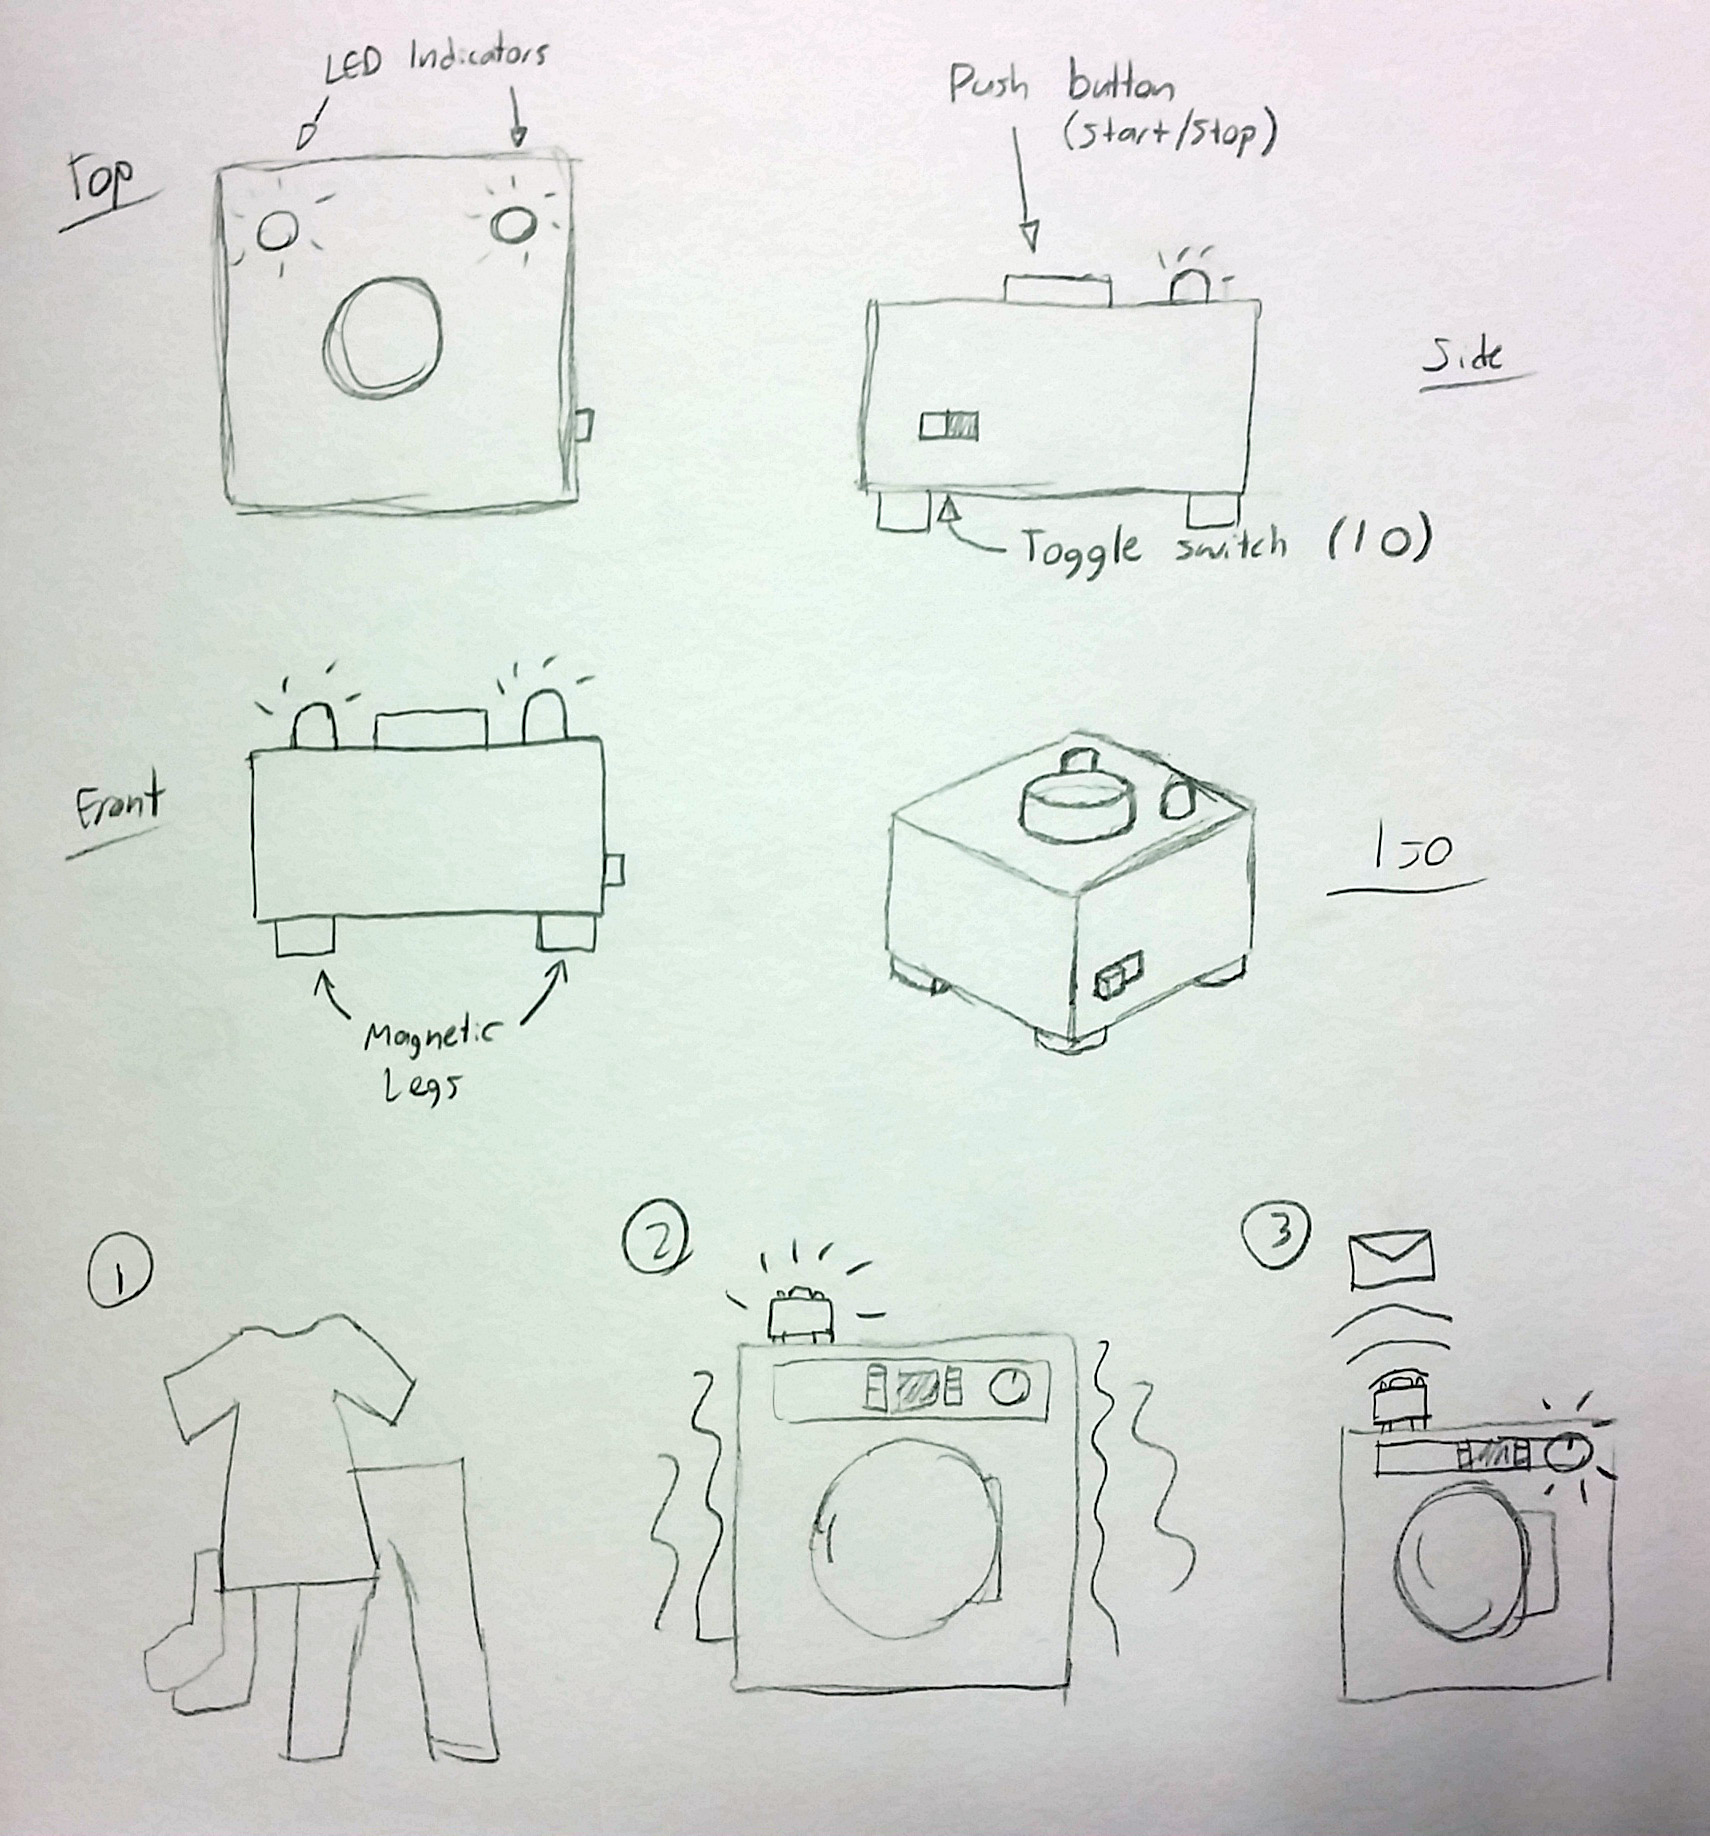 LED Indicators
Push button
(Start/Stop)
Top
Side
Toggle switch (I O)
Front
Iso
Magnetic
Legs
1
2
3